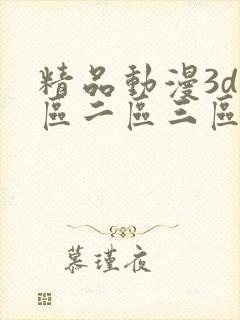 精品動漫3d
區二區三區
慕瑾夜